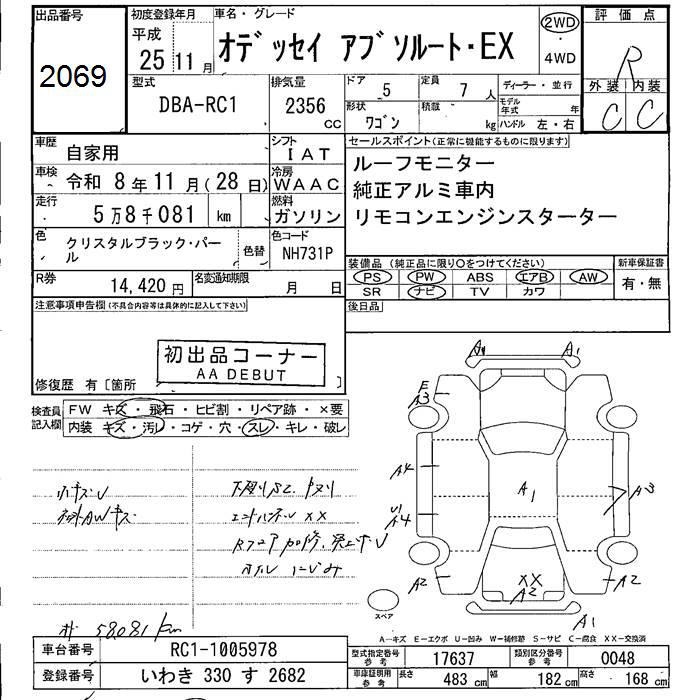 出品番号
2069
初度登録年月
平成
25 11月
車名・グレード
オデッセイ アブソルート・EX
2WD
・
4WD
評価点
R
外装 内装
C C
型式
DBA-RC1
排気量
2356
cc
ドア
5
定員
7 人
形状
ワゴン
積載
kg
ディーラー・並行
モデル年式 年
ハンドル 左・右
車歴
自家用
シフト
IAT
車検
令和 8年11月(28日)
冷房
WAAC
走行
5万8千081 km
燃料
ガソリン
色
クリスタルブラック・パール
色替
色コード
NH731P
R券
14,420円
名変通知期限
月 日
セールスポイント(正常に機能するものに限ります)
ルーフモニター
純正アルミ車内
リモコンエンジンスターター
装備品(純正品に限り○をつけてください)
PS PW ABS エアB AW
SR ナビ TV カワ
新車保証書
有・無
後日品
注意事項申告欄(不具合内容等は具体的に記入して下さい)
初出品コーナー
AA DEBUT
修復歴 有〔箇所 〕
検査員記入欄
FW キズ・飛石・ヒビ割・リペア跡・×要
内装 キズ・汚レ・コゲ・穴・スレ・キレ・破レ
58081km
A1
A1
E
A3
A4
U1
A4
A1
A3
A2
XX
A2
A2
A1
スペア
A―キズ E―エクボ U―凹み W―補修跡 S―サビ C―腐食 XX―交換済
車台番号
RC1-1005978
登録番号
いわき 330 す 2682
型式指定番号
参考
17637
類別区分番号
参考
0048
車庫証明用
参考
長さ
483 cm
幅
182 cm
高さ
168 cm